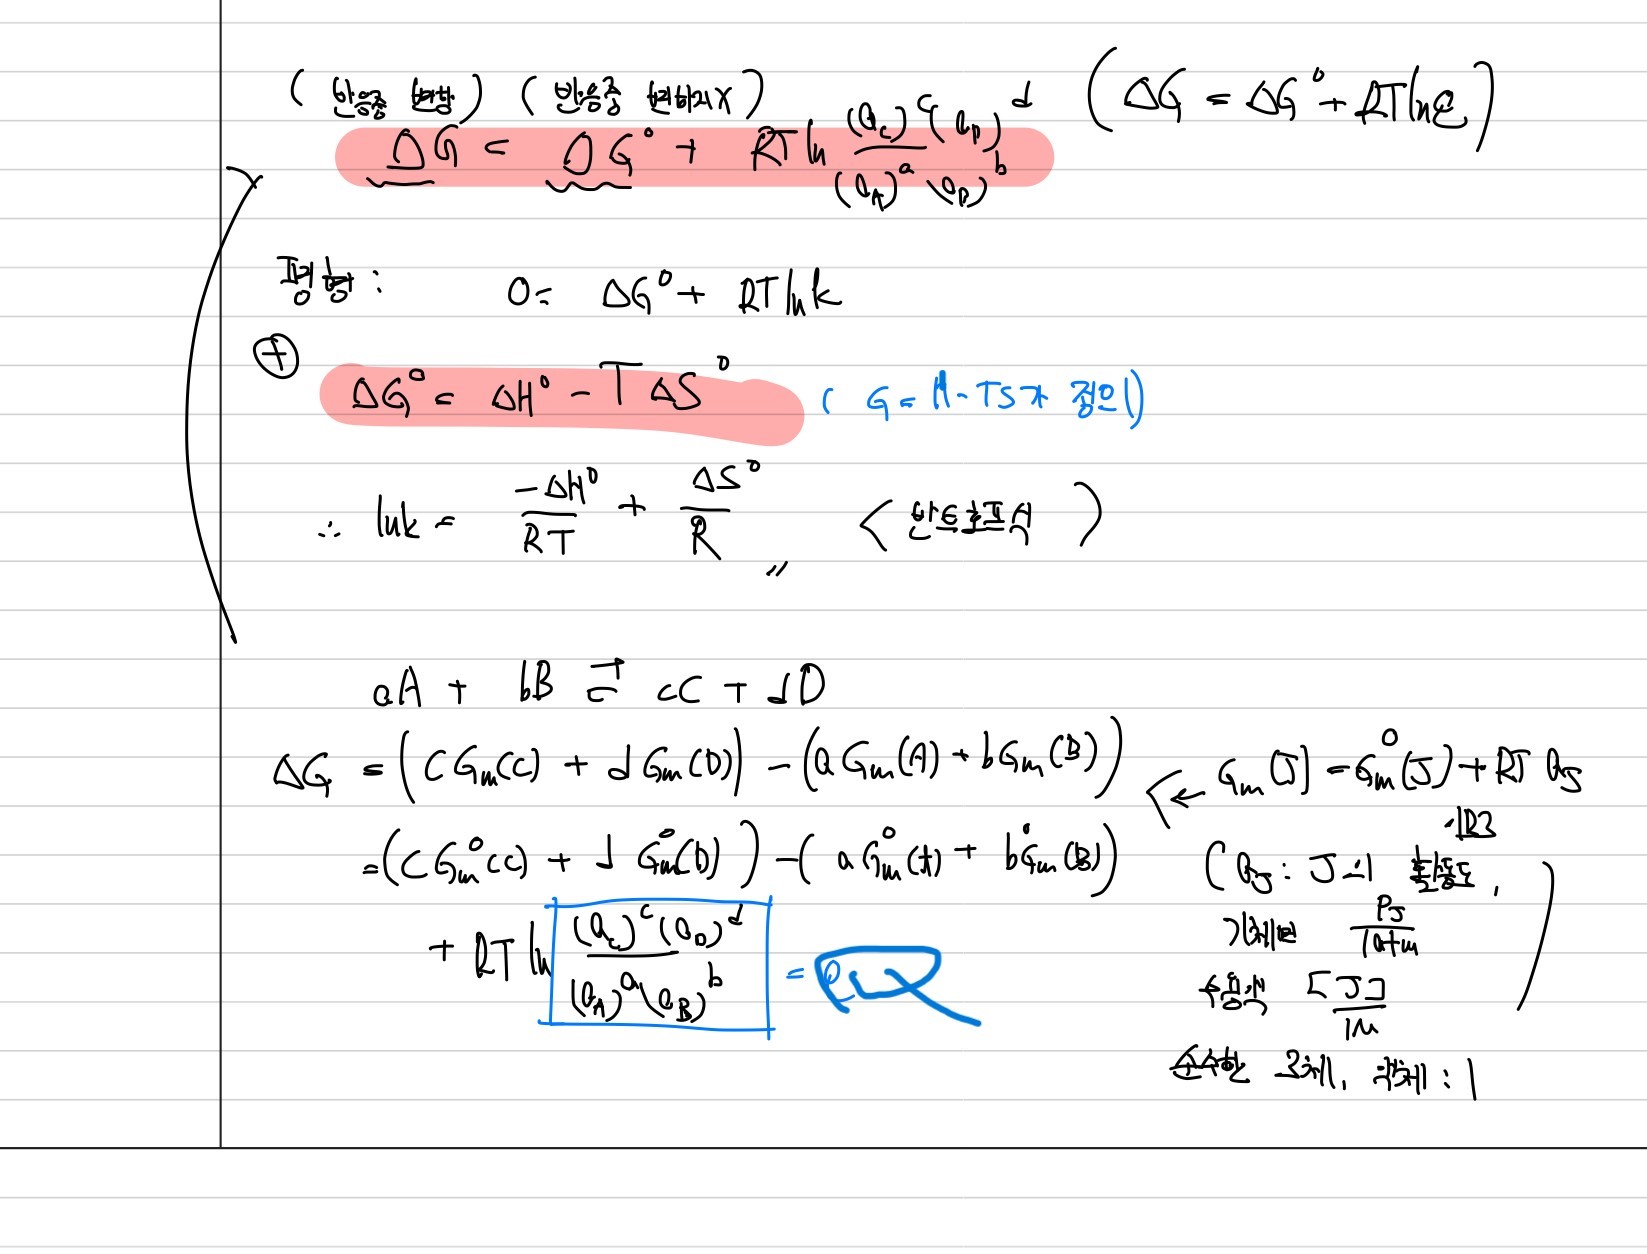 (반응중 변함) (반응중 변하지X)
ΔG = ΔG° + RT ln (a_C)^c (a_D)^d / (a_A)^a (a_B)^b (ΔG = ΔG° + RT ln Q)
평형: 0 = ΔG° + RT ln k
⊕
ΔG° = ΔH° - TΔS° (G = H-TS가 정의)
∴ ln k = -ΔH°/RT + ΔS°/R 〃 <반트호프식>
aA + bB ⇄ cC + dD
ΔG = (C G_m(C) + d G_m(D)) - (a G_m(A) + b G_m(B)) ← G_m(J) = G_m°(J) + RT a_J
= (C G_m°(C) + d G_m°(D)) - (a G_m°(A) + b G_m°(B))
+ RT ln (a_C)^c (a_D)^d / (a_A)^a (a_B)^b = Q
(a_J : J의 활동도,
기체면 P_J / 1atm
수용액 [J] / 1M
순수한 고체, 액체 : 1